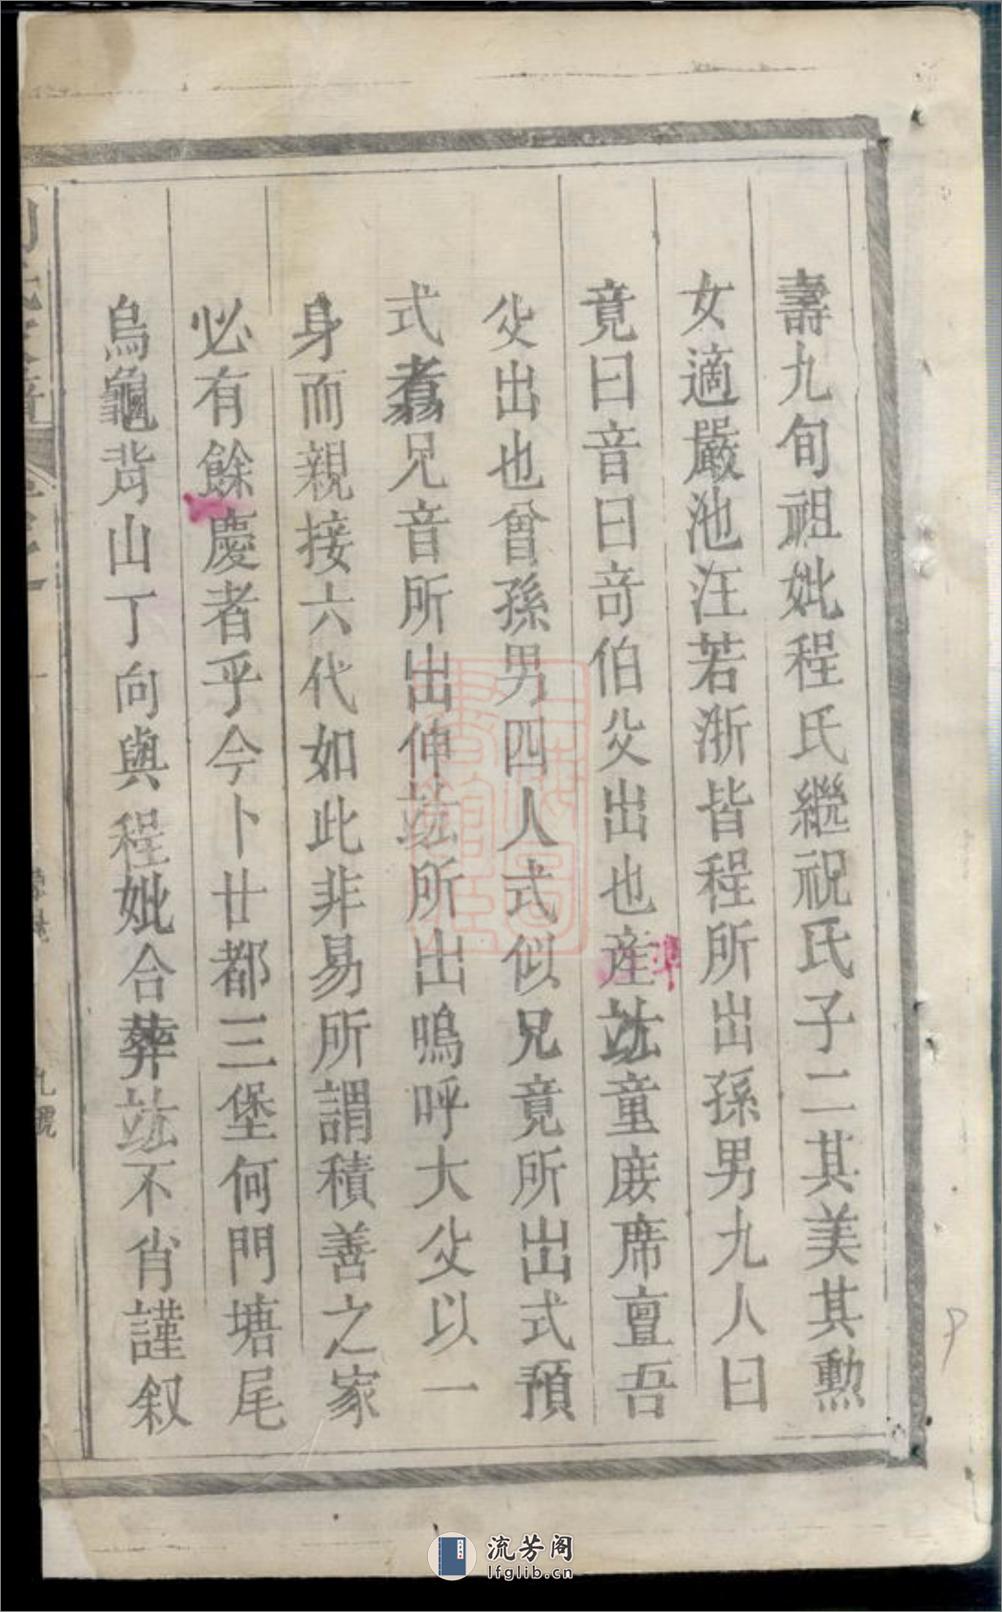 壽九旬祖妣程氏繼祝氏子二其美其勲
女適嚴池汪若浙皆程所出孫男九人曰
竟曰音曰竒伯父出也產竝童庻席亶吾
父出也曾孫男四人式似兄竟所出式預
式燾兄音所出伸竝所出嗚呼大父以一
身而親接六代如此非易所謂積善之家
必有餘慶者乎今卜廿都三堡何門塘尾
烏龜背山丁向與程妣合葬竝不肖謹叙
九號
流芳阁
lfglib.cn